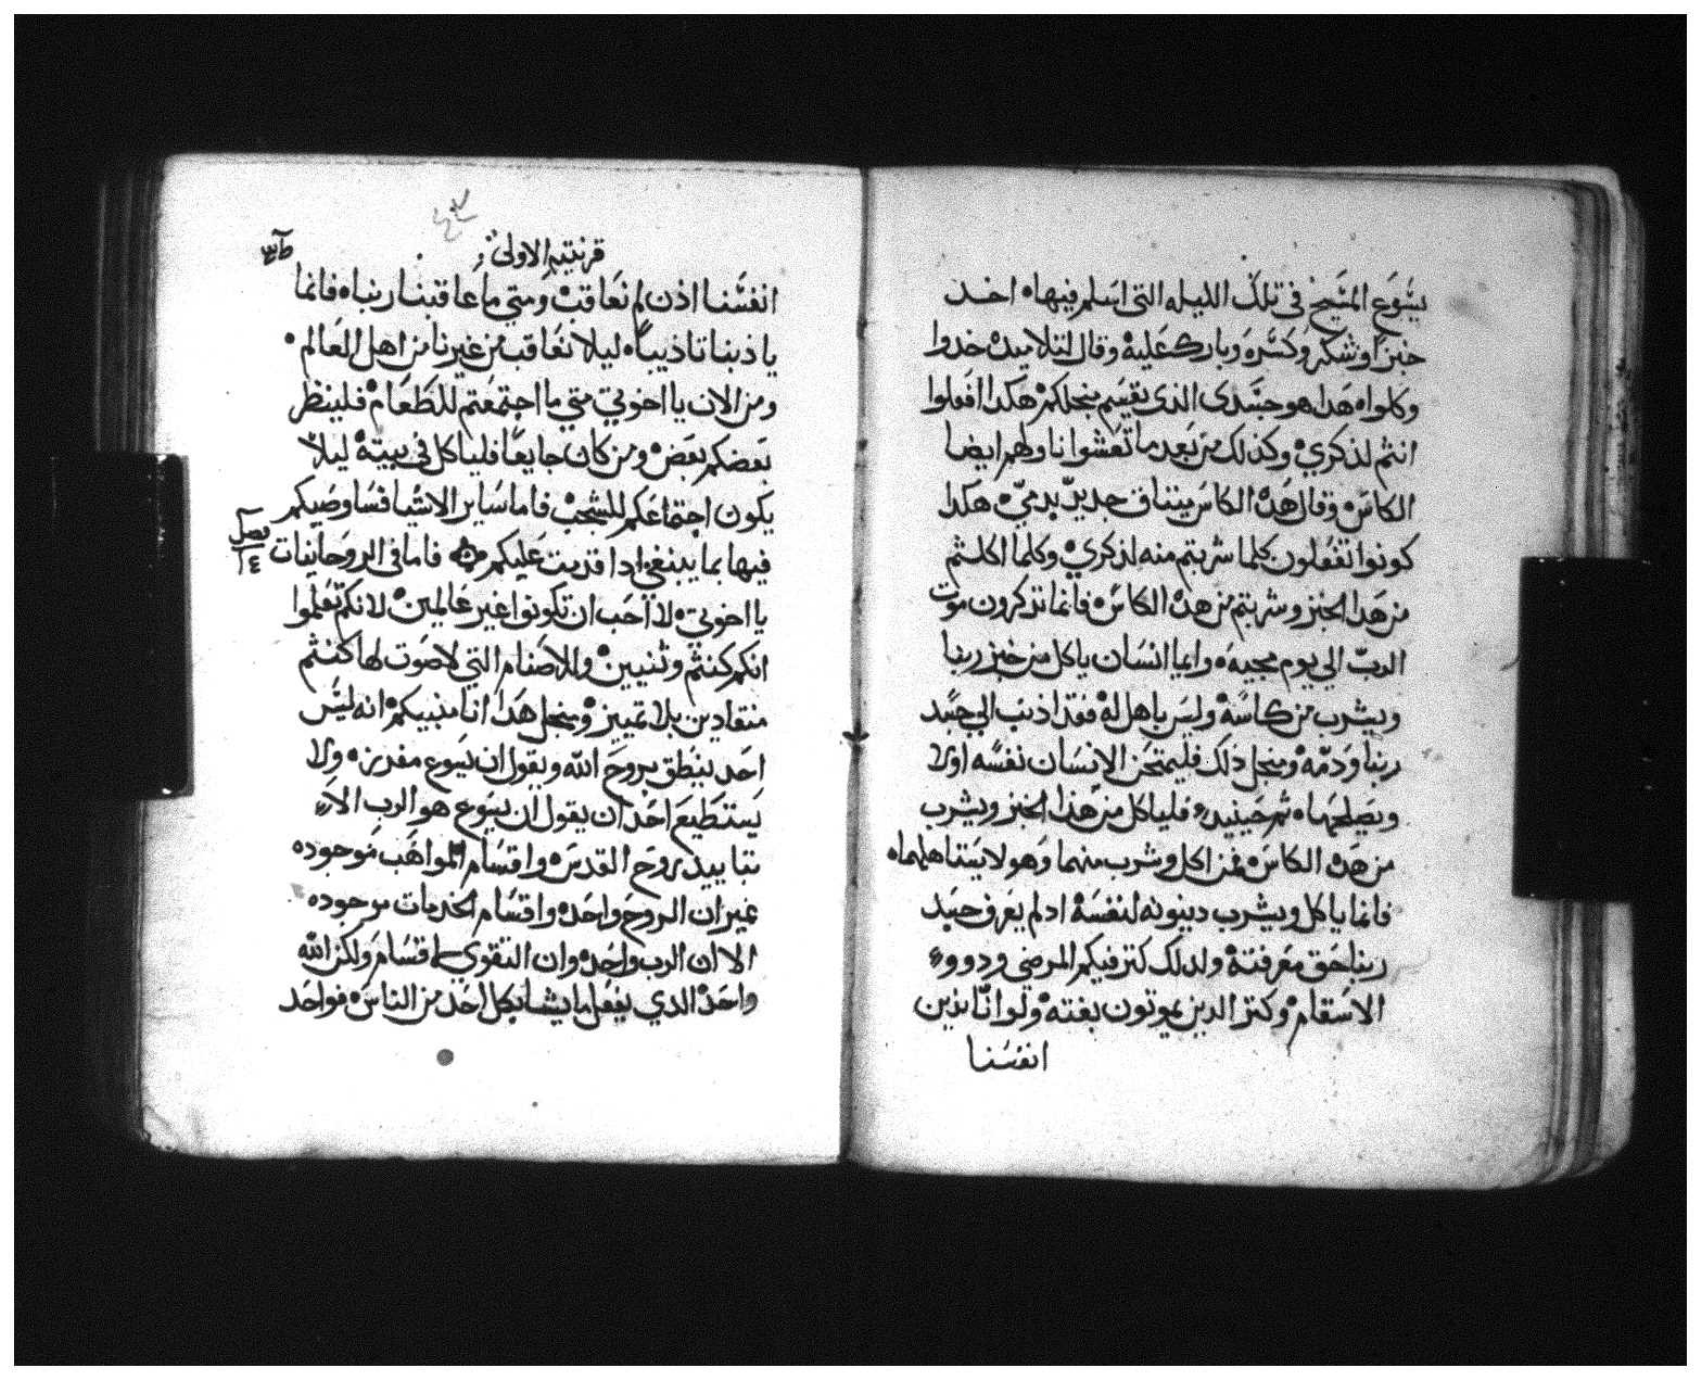 يسوع المسيح في تلك الليله التى اسلم فيها ه اخد
خبزًا وشكر وكسره وبارك عليه وقال لتلاميده خدوا
وكلوا ه هدا هو جسدى الدى يقسم منجلكم هكدا افعلوا
انتم لذكري وكذلك من بعد ما تعشوا ناولهم ايضا
الكاس ه وقال هده الكاس ميتاق جديد بدمي ه هكدا
كونوا تفعلون كلما شربتم منه لذكري وكلما اكلتم
من هدا الخبز وشربتم من هده الكاس ه فانما تذكرون موت
الرب الي يوم مجيه ه وايما انسان ياكل من خبز ربنا
ويشرب من كاسه وليس باهل له فقد اذنب الي جسد
ربنا ودمه ومنجل ذلك فليمتحن الانسان نفسه اولا
ويصلحها ه ثم حينيد فلياكل من هذا الخبز ويشرب
من هده الكاس ه فمن اكل وشرب منهما وهو لا يستاهلهما ه
فانما ياكل ويشرب دينونه لنفسه ادلم يعرف جسد
ربنا حق معرفته ولدلك كتر فيكم المرضي ودوو
الاسقام وكتر الدين يموتون بغته ولو انا ندين
انفسنا
قرنتيه الاولى
انفسنا اذن لم نعاقب ومتي ما عاقبنا ربنا ه فانما
يادبنا تاذيبا ه ليلا نعاقب من غيرنا من اهل العالم
ومن الان يا اخوتي متي ما اجتمعتم للطعام فلينظر
بعضكم بعض ومن كان جايعا فلياكل في بيته ليلا
يكون اجتماعكم للشجب فاما ساير الاشيا فساوصيكم
فيها بما ينبغي ادا قدمت عليكم فاما في الروحانيات
فصل
١٤
يا اخوتي ه لا احب ان تكونوا غير عالمين لانكم تعلموا
انكم كنتم وتنيين وللاصنام التي لا صوت لها كنتم
منقادين بلا تمييز ومنجل هدا انا منبيكم انه ليس
احد ينطق بروح الله ويقول ان يسوع مفرز ه ولا
يستطيع احد ان يقول ان يسوع هو الرب الا
بتاييد روح القدس ه واقسام المواهب موجوده
غير ان الروح واحد ه واقسام الخدمات موجوده
الا ان الرب واحد ه وان القوي اقسام ولكن الله
واحد الدي يفعل ما يشا بكل احد من الناس ه فواحد